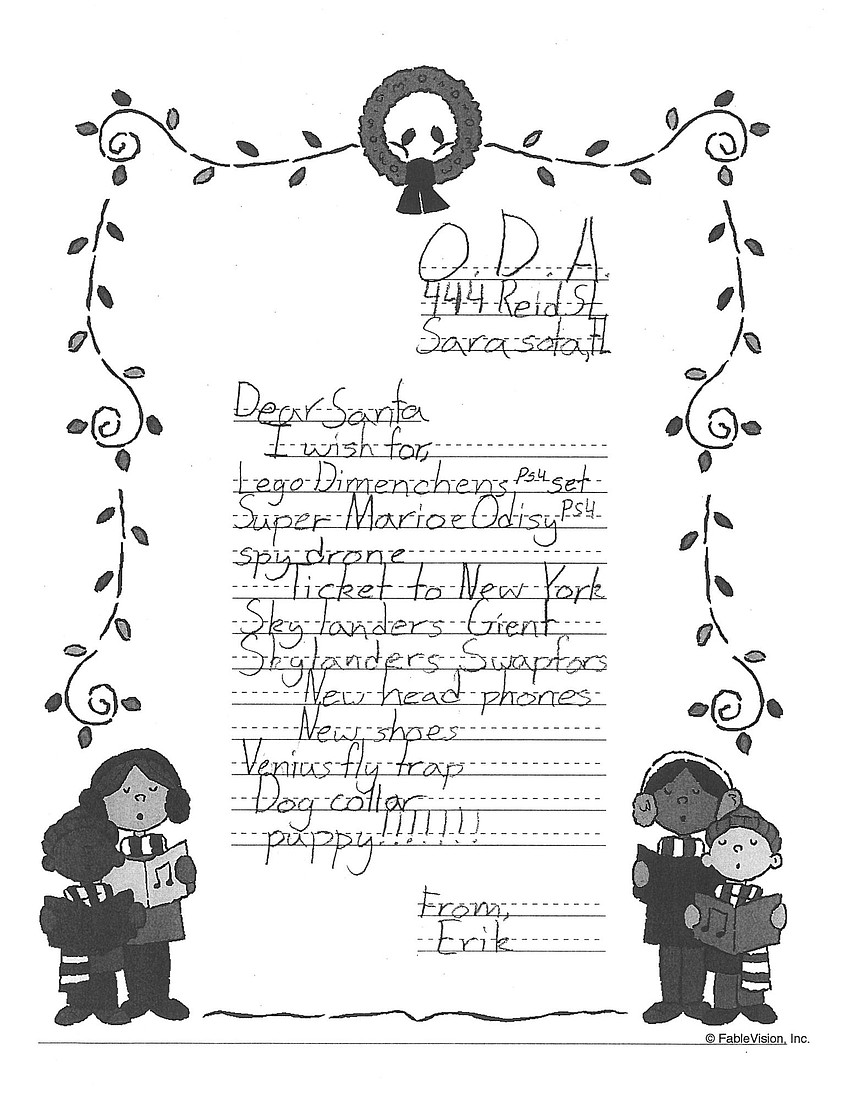 O.D.A.
444 Reid St.
Sarasota, Fl
Dear Santa
I wish for,
Lego Dimenchens Ps4 set
Super Marioe Odisy Ps4
spy drone
Ticket to New York
Skylanders Gient
Skylanders Swapfors
New head phones
New shoes
Venius fly trap
Dog collar
puppy!!!!!!!
From,
Erik
© FableVision, Inc.